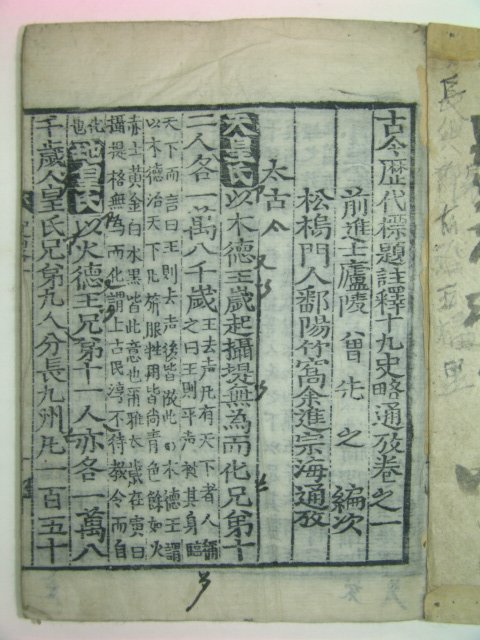 古今歷代標題註釋十九史略通攷卷之一
前進士廬陵 曾先之 編次
松塢門人鄱陽竹窩余進宗海通攷
太古
天皇氏以木德王歲起攝提無為而化兄弟十
二人各一萬八千歲 王去声凡有天下者人稱之曰王則平声㨿其身臨
天下而言曰王則去声後皆倣此 木德王謂
以木德治天下凡 服牲用皆尚青色餘如火
赤土黃金白水黑皆此意也爾雅太歲在寅曰
攝提格無為而化謂上古民淳不待教令而自
化也 地皇氏以火德王兄弟十一人亦各一萬八
千歲人皇氏兄弟九人分長九州凡一百五十